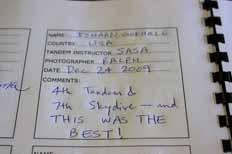 NAME: ESHAAN GOKHALE
COUNTRY: USA
TANDEM INSTRUCTOR: SASA
PHOTOGRAPHER: RALPH
DATE: Dec 24 2009
COMMENTS:
4th Tandem &
7th Skydive — and
THIS WAS THE
BEST!